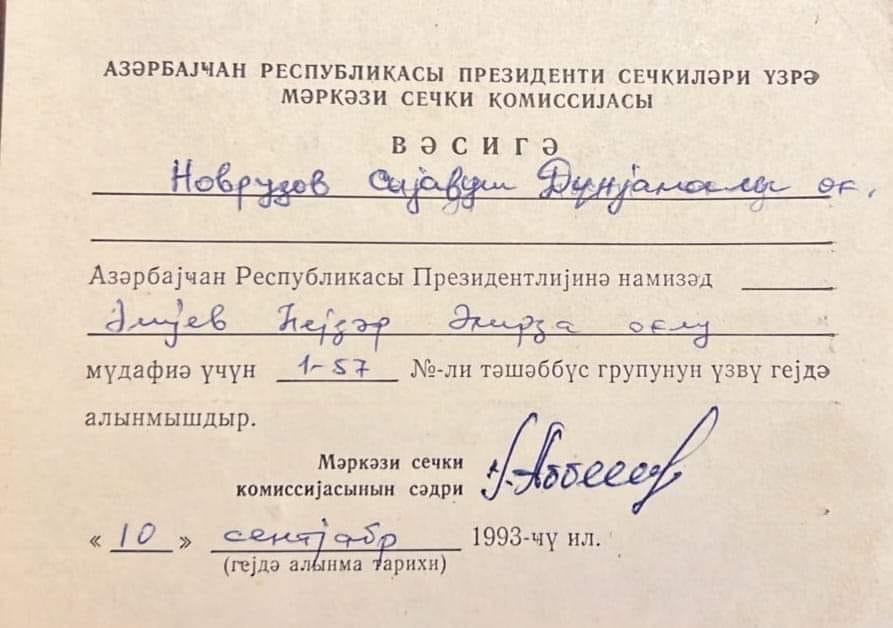 АЗӘРБАЈҸАН РЕСПУБЛИКАСЫ ПРЕЗИДЕНТИ СЕЧКИЛӘРИ ҮЗРӘ
МӘРКӘЗИ СЕЧКИ КОМИССИЈАСЫ
ВӘСИГӘ
Новрузов Сијавуш Дүнјамалы ог.
Азәрбајҹан Республикасы Президентлијинә намизәд
Әлијев Һејдәр Әлирза оғлу
мүдафиә үчүн 1-57 №-ли тәшәббүс групунун үзвү гејдә
алынмышдыр.
Мәркәзи сечки
комиссијасынын сәдри
« 10 » сентјабр 1993-ҹү ил.
(гејдә алынма тарихи)